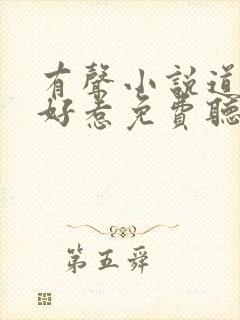 有聲小說道
好惹免費聽
第五舜